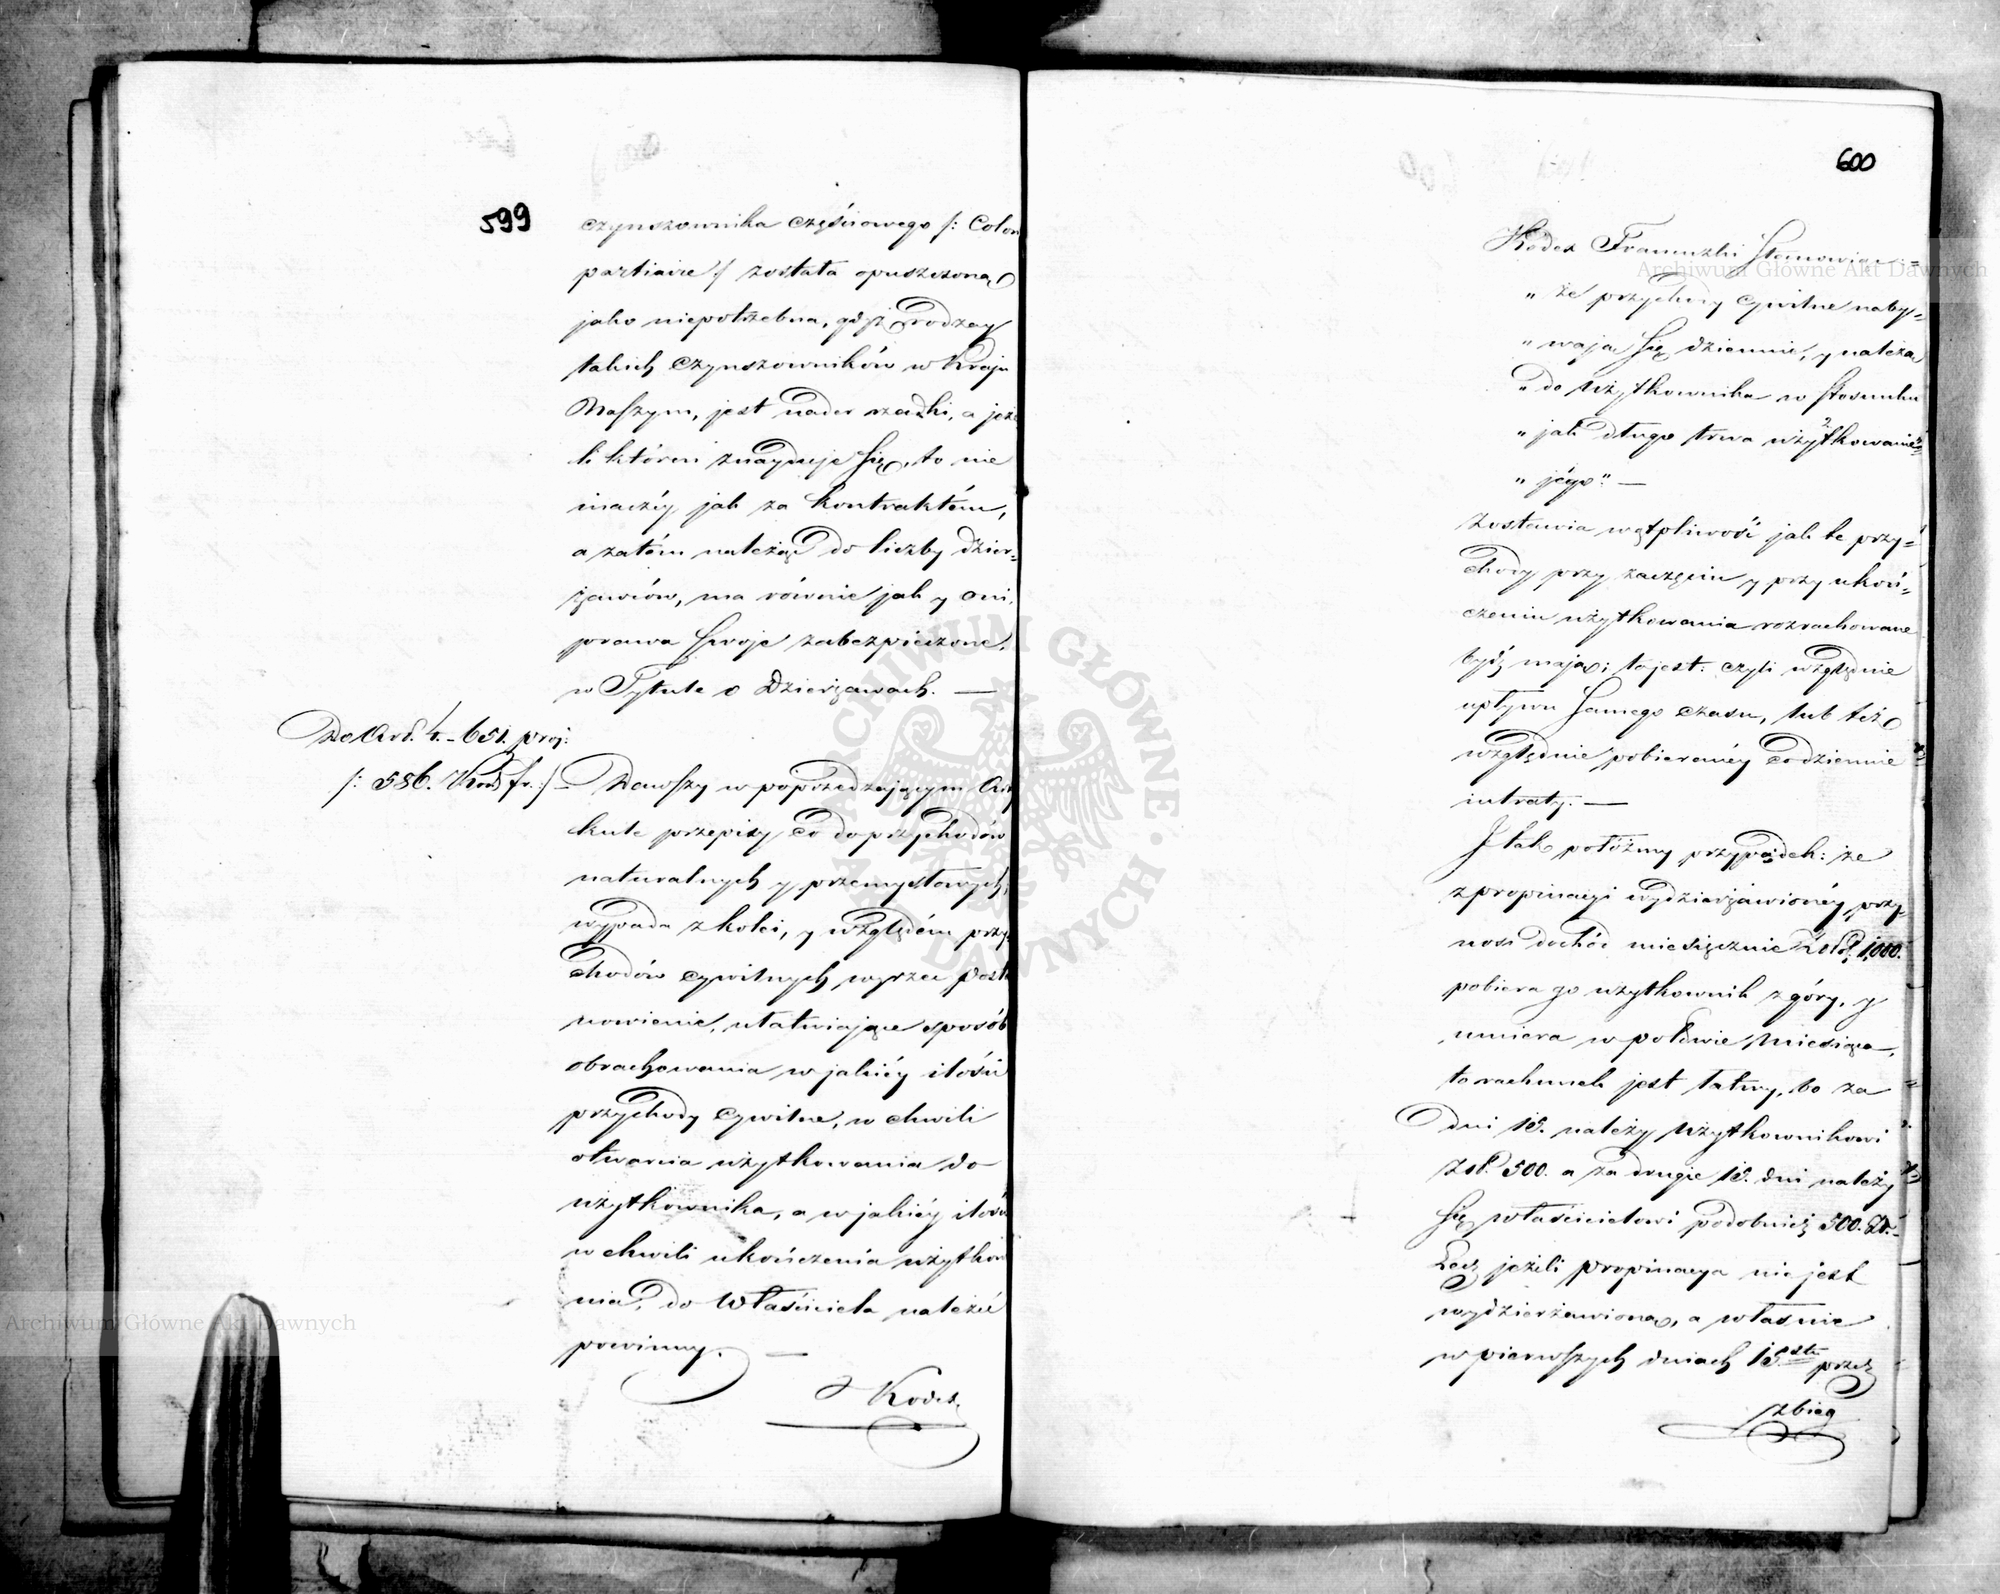 599
czynszownika częściowego /: Colon
partiaire :/ została opuszczoną
jako niepotrzebna, gdyż rodzay
takich czynszowników w Kraju
Naszym, jest nader rzadki, a jeże
li któren znayduje się, to nie
inaczéy jak za kontraktem,
a zatém należąc do liczby dzier=
żawców, ma równie jak y oni,
prawa swoje zabezpieczone,
w Tytule o Dzierżawach. —
Do Art. 4. - 651. proj:
/: 586. Kod. fr. :/
Dawszy w poprzedzającym Arty
kule przepisy co do przychodów
naturalnych y przemysłowych,
wypada z kolei, y względem przy
chodów cywilnych wyrzec posta
nowienie, ułatwiające sposób
obrachowania w jakiéy ilości
przychody cywilne, w chwili
otwarcia użytkowania do
użytkownika, a w jakiéy ilości
w chwili ukończenia użytkowa
nia, do Właściciela należeć
powinny. —
Kodex
600
Kodex Francuzki stanowiąc:=
„ że przychody cywilne naby=
„ wają się dziennie, y należą
„ do użytkownika w stosunku
„ jak długo trwa użytkowanie
„ jégo“. —
zostawia wątpliwość jak te przy=
chody przy zaczęciu y przy ukoń=
czeniu użytkowania rozrachowane
bydź mają; to jest: czyli względnie
upływu samego czasu, lub też
względnie pobieranéy codziennie
intraty. —
I tak połóżmy przypadek: że
z propinacyi wydzierżawionéy, przy=
nosi dochód miesięcznie Złot: 1,000.
pobiera go użytkownik z góry, y
umiera w połowie Miesiąca,
to rachunek jest łatwy, bo za
dni 15. należy Użytkownikowi
Zł. 500. a za drugie 15. dni należy
się właścicielowi podobnież 500. Zł.
Lecz jeżeli propinacya nie jest
wydzierżawioną, a właśnie
w pierwszych dniach 15.stu przez
zbieg
Archiwum Główne Akt Dawnych
Archiwum Główne Akt Dawnych
ARCHIWUM GŁÓWNE AKT DAWNYCH